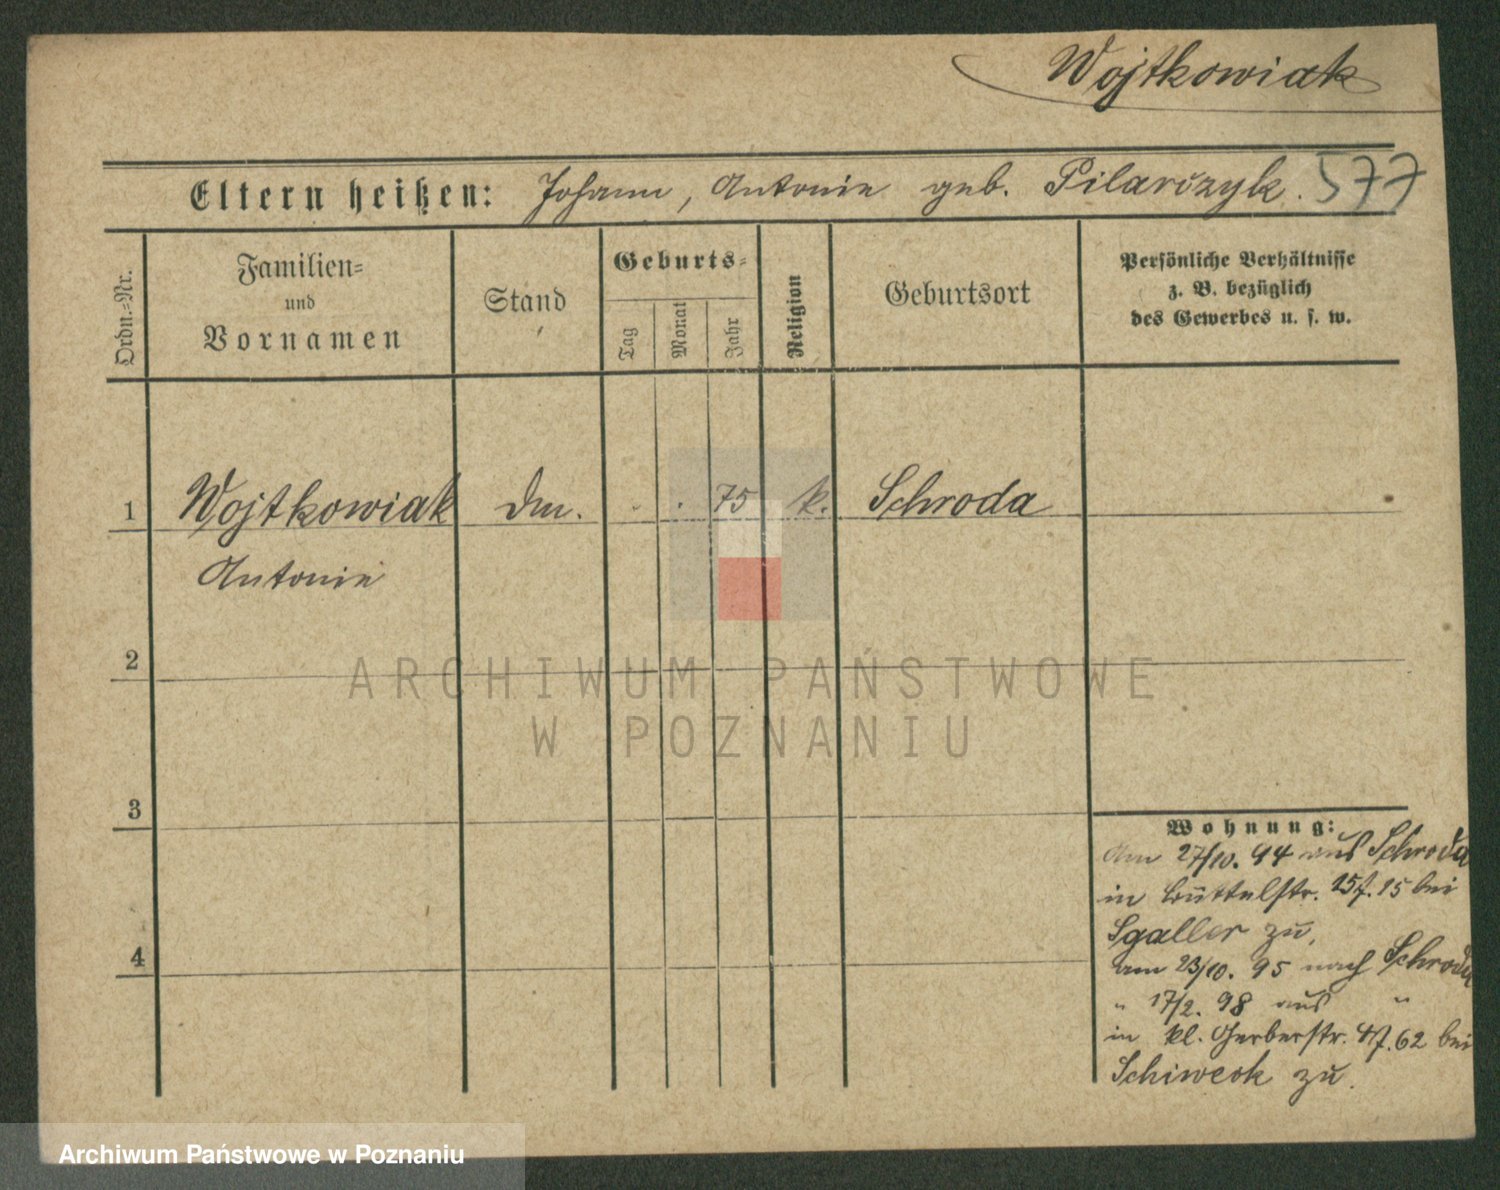 Wojtkowiak
Eltern heißen: Johann, Antonie geb. Pilarczyk. 577
Ordn.-Nr.
Familien-
und
Vornamen
Stand
Geburts-
Tag
Monat
Jahr
Religion
Geburtsort
Persönliche Verhältnisse
z. B. bezüglich
des Gewerbes u. s. w.
1 Wojtkowiak . . 75 k. Schroda
Antonie
2
3
4
ARCHIWUM PAŃSTWOWE
W POZNANIU
Wohnung:
Am 27/10. 94 aus Schroda
in Büttelstr. 15 bei
Sgaller zu,
am 23/10. 95 nach Schroda
" 17/2. 98 aus "
in kl. Gerberstr. bei
Schiweck zu.
Archiwum Państwowe w Poznaniu